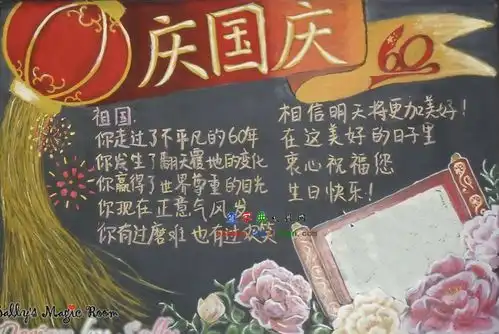 庆国庆
60
祖国:
你走过了不平凡的60年
你发生了翻天覆地的变化
你赢得了世界尊重的目光
你现在正意气风发
你有过磨难也有过欢笑
相信明天将更加美好!
在这美好的日子里
衷心祝福您
生日快乐!
Sally's Magic Room